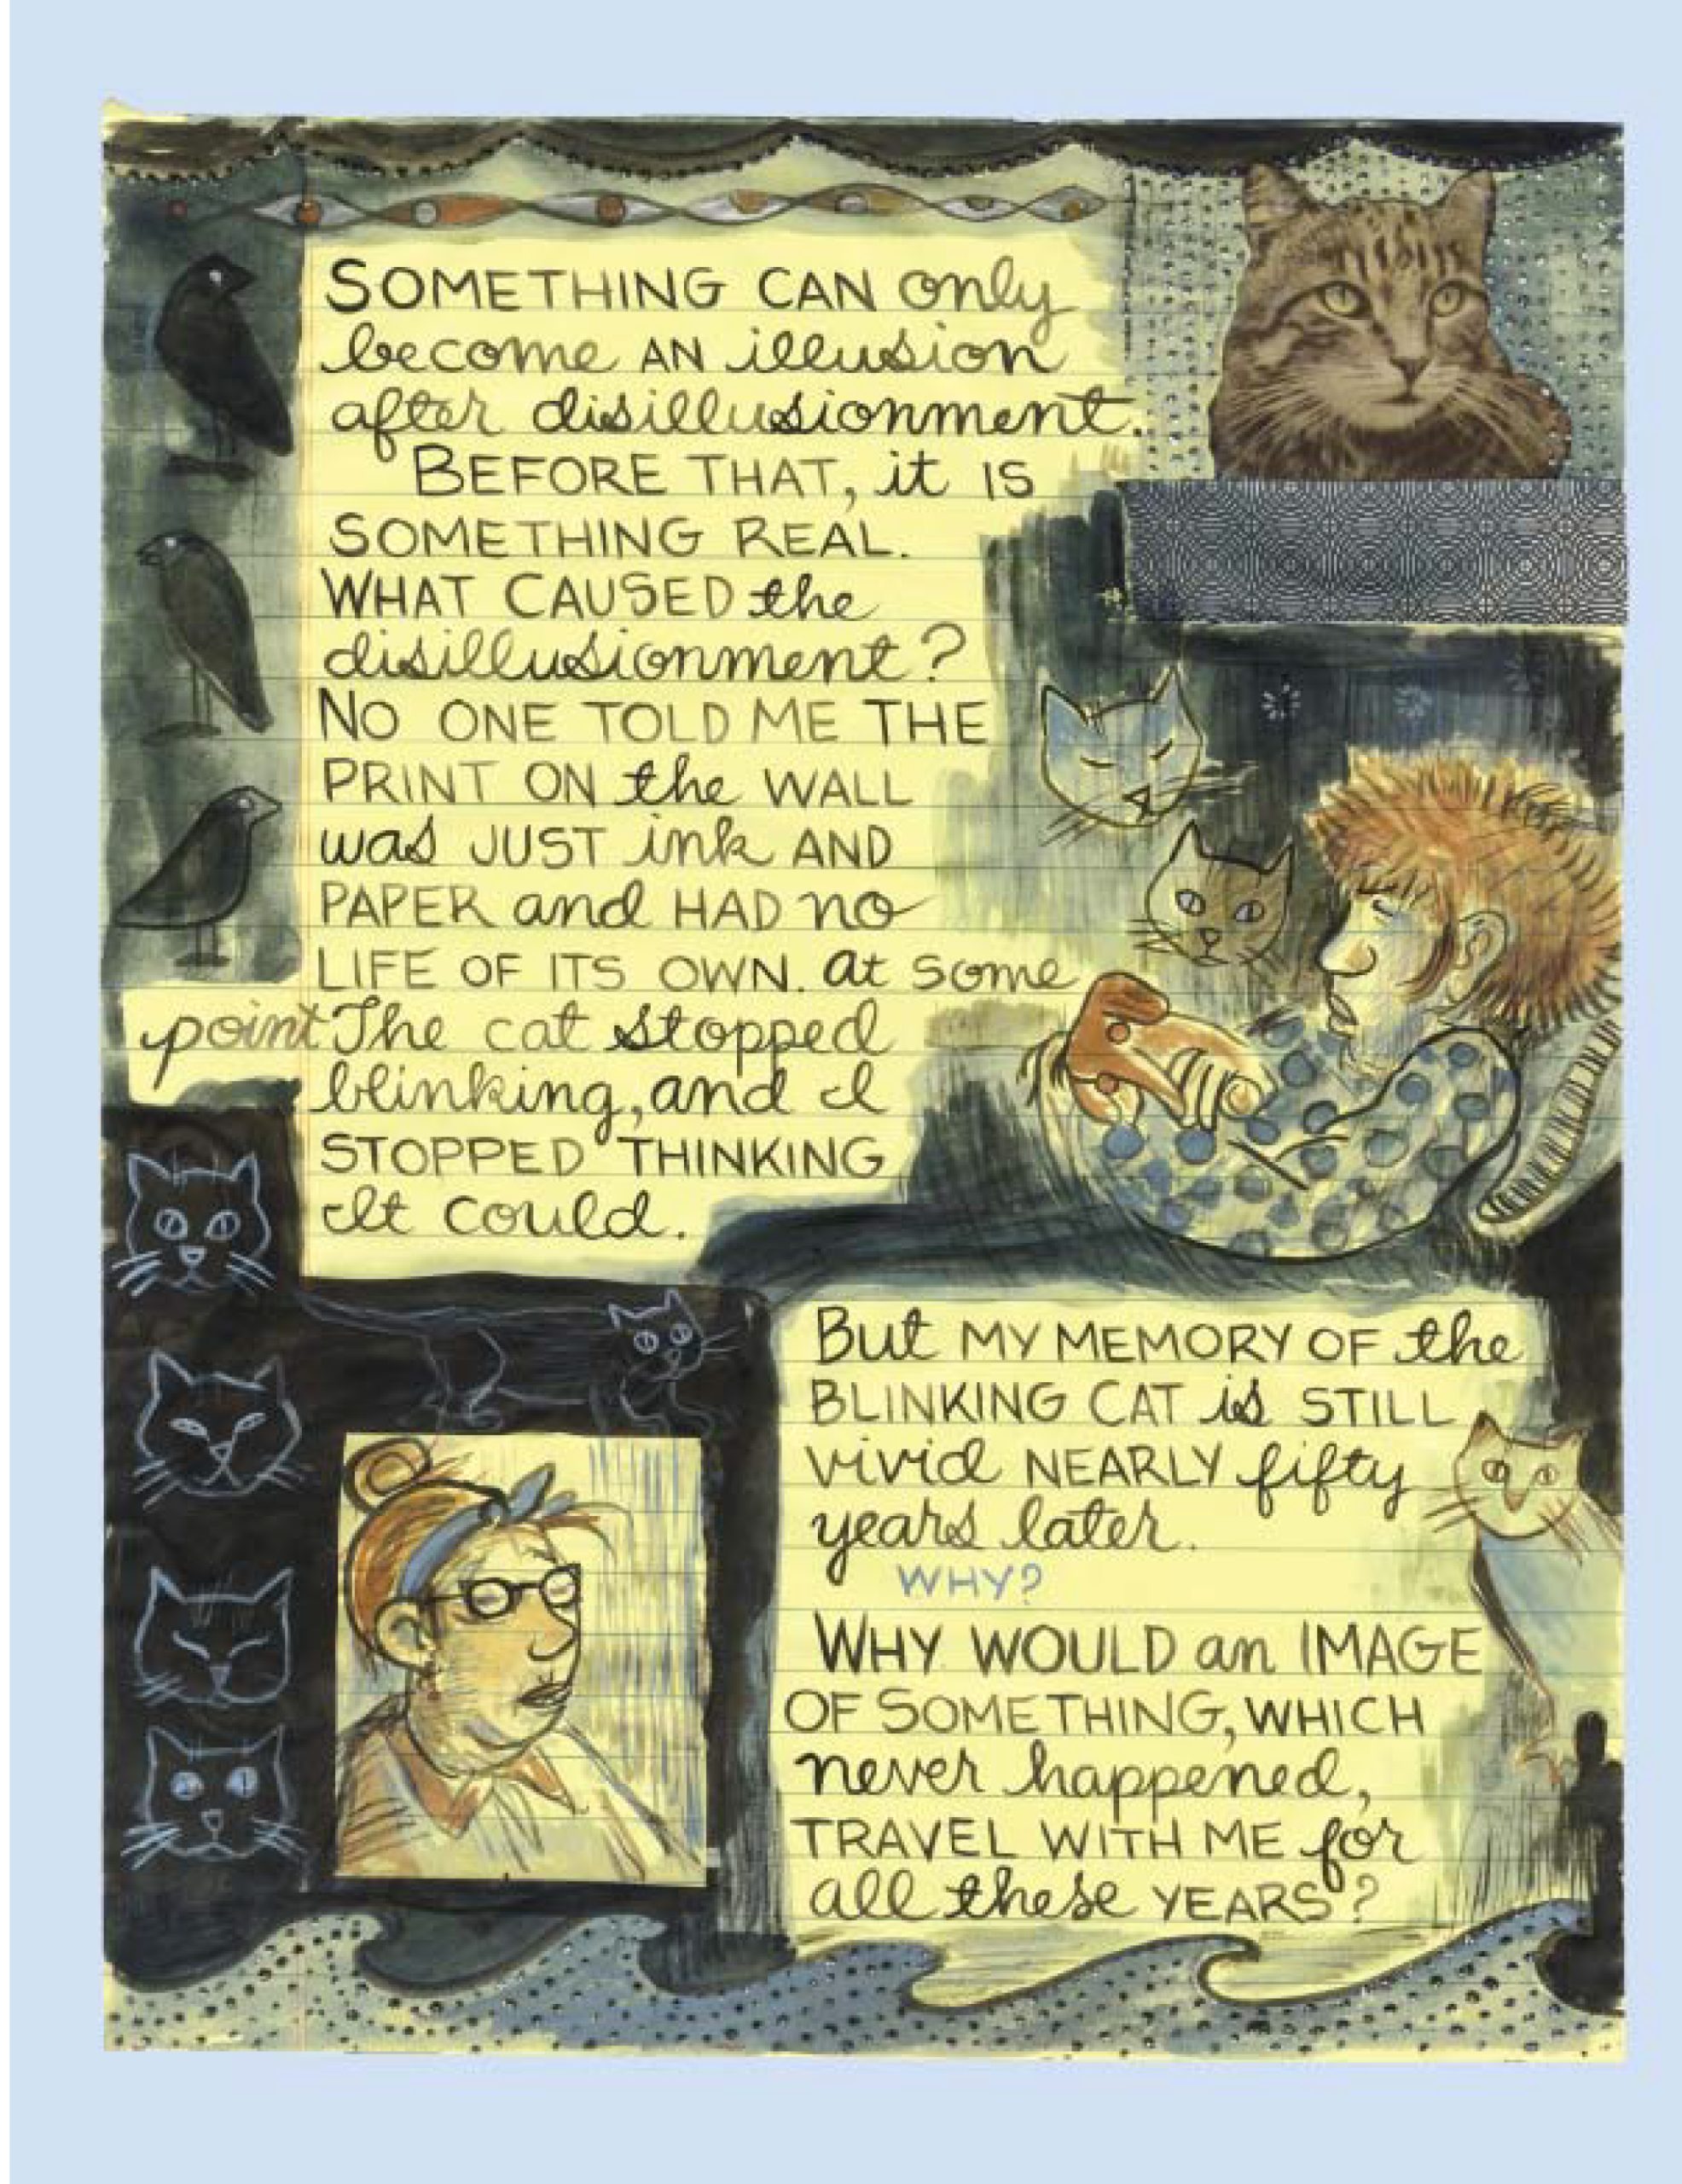 SOMETHING CAN only
become AN illusion
after disillusionment.
BEFORE THAT, it IS
SOMETHING REAL.
WHAT CAUSED the
disillusionment?
NO ONE TOLD ME THE
PRINT ON the WALL
was JUST ink AND
PAPER and HAD no
LIFE OF ITS OWN. at some
point The cat stopped
blinking, and I
STOPPED THINKING
It could.
But MY MEMORY OF the
BLINKING CAT is STILL
vivid NEARLY fifty
years later.
WHY?
WHY WOULD an IMAGE
OF SOMETHING, WHICH
never happened,
TRAVEL WITH ME for
all these YEARS?